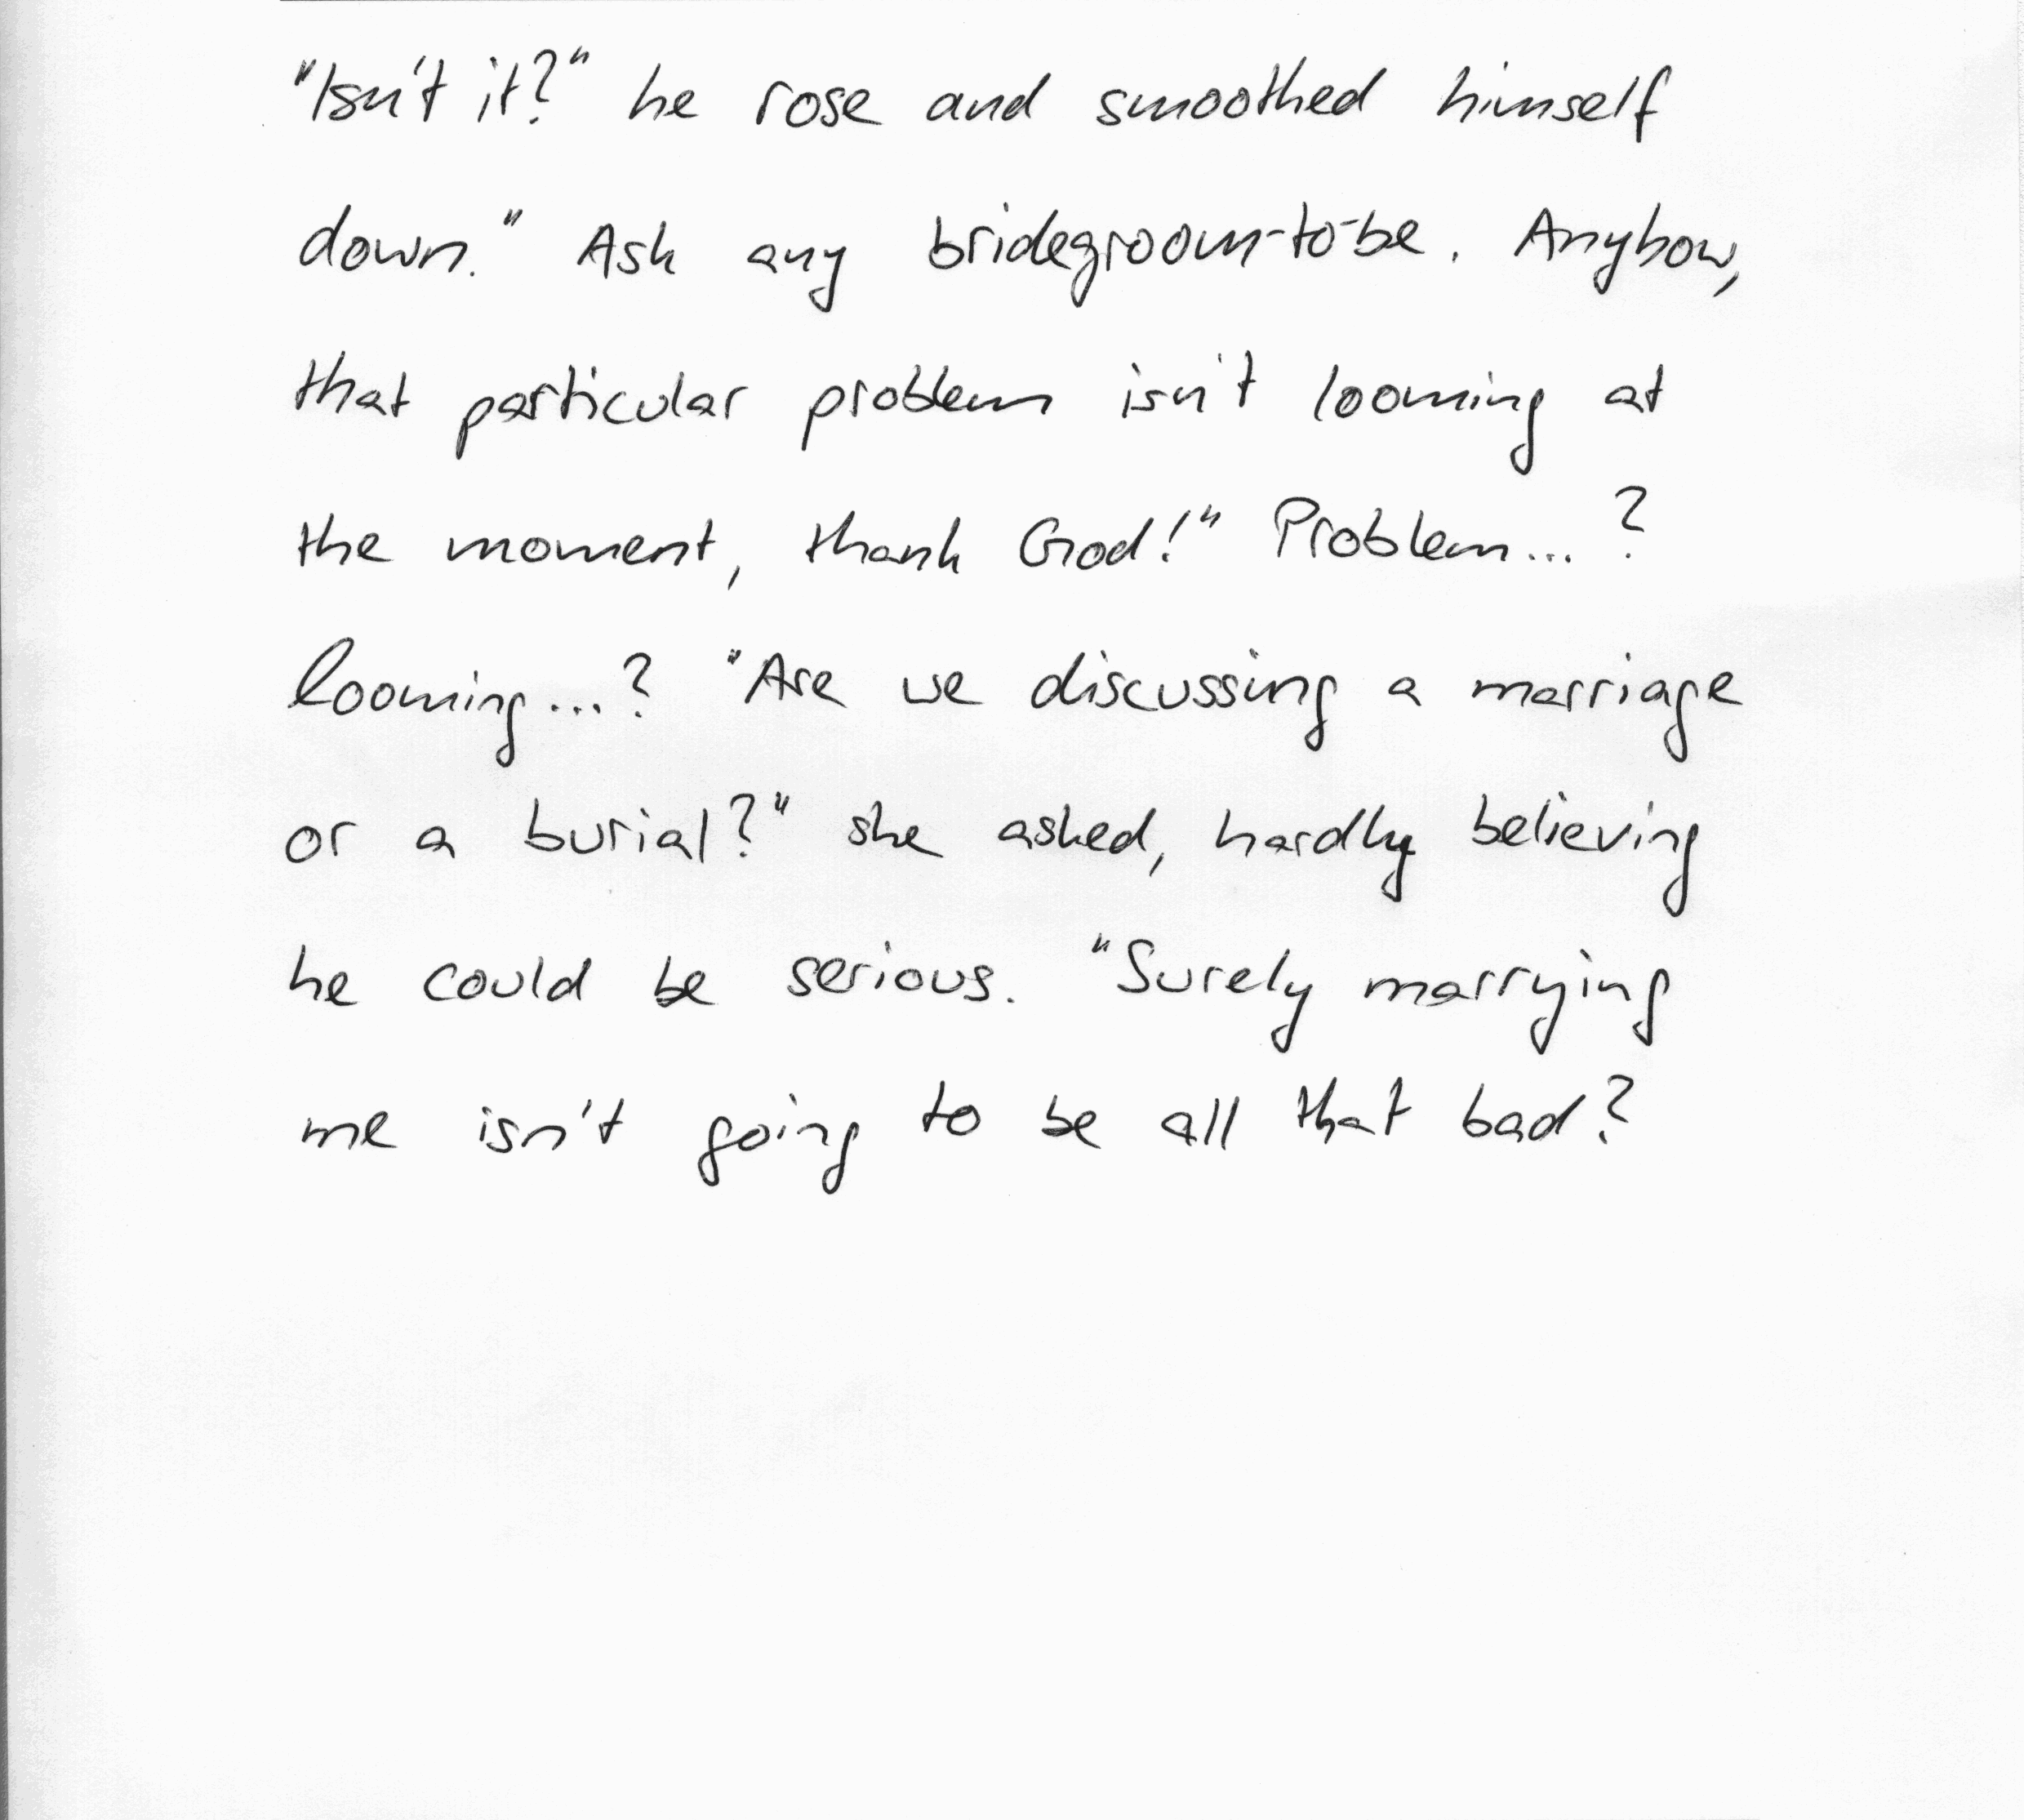 "Isn't it?" he rose and smoothed himself
down." Ask any bridegroom-to-be. Anyhow,
that particular problem isn't looming at
the moment, thank God!" Problem...?
looming...? "Are we discussing a marriage
or a burial?" she asked, hardly believing
he could be serious. "Surely marrying
me isn't going to be all that bad?